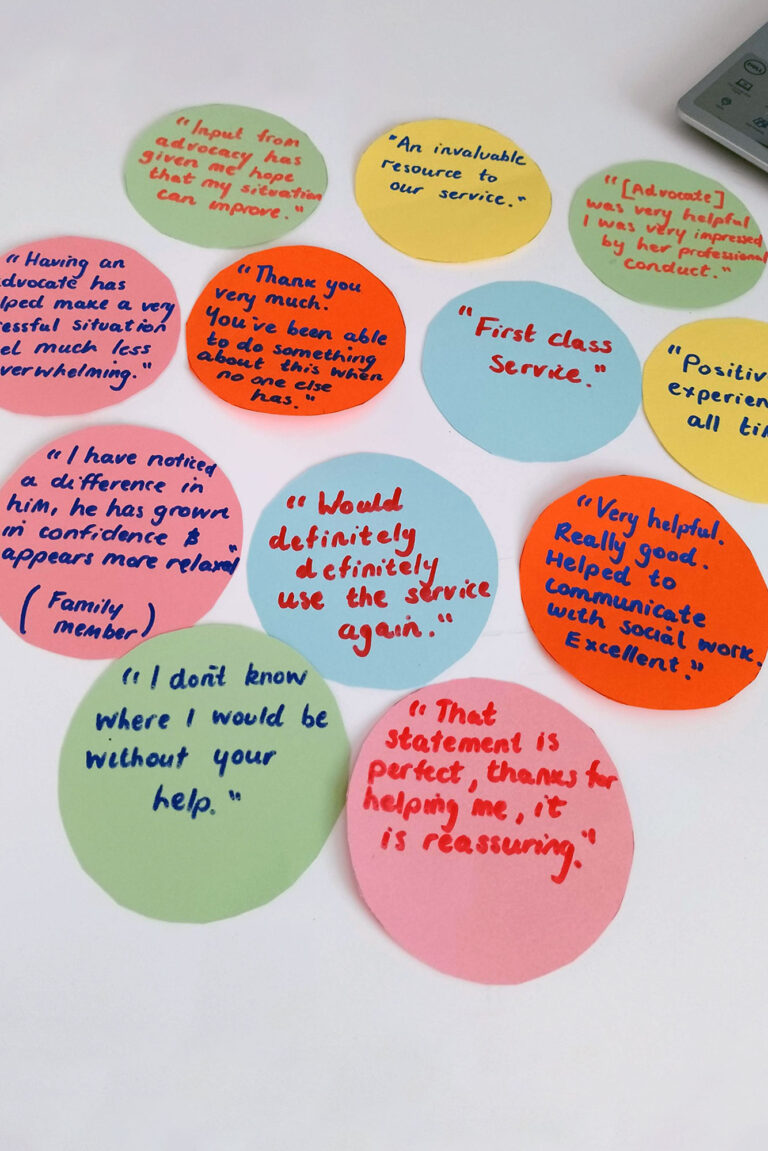 "Input from
advocacy has
given me hope
that my situation
can improve."
"An invaluable
resource to
our service."
"[Advocate]
was very helpful
I was very impressed
by her professional
conduct."
DELL
"Having an
advocate has
lped make a very
essful situation
el much less
verwhelming."
"Thank you
very much.
You've been able
to do something
about this when
no one else
has."
"First class
service."
"Positiv
experien
all ti
"I have noticed
a difference in
him, he has grown
in confidence &
appears more relaxed"
(Family
member)
"Would
definitely
definitely
use the service
again."
"Very helpful.
Really good.
Helped to
communicate
with social work.
Excellent."
"I don't know
where I would be
without your
help."
"That
statement is
perfect, thanks for
helping me, it
is reassuring."